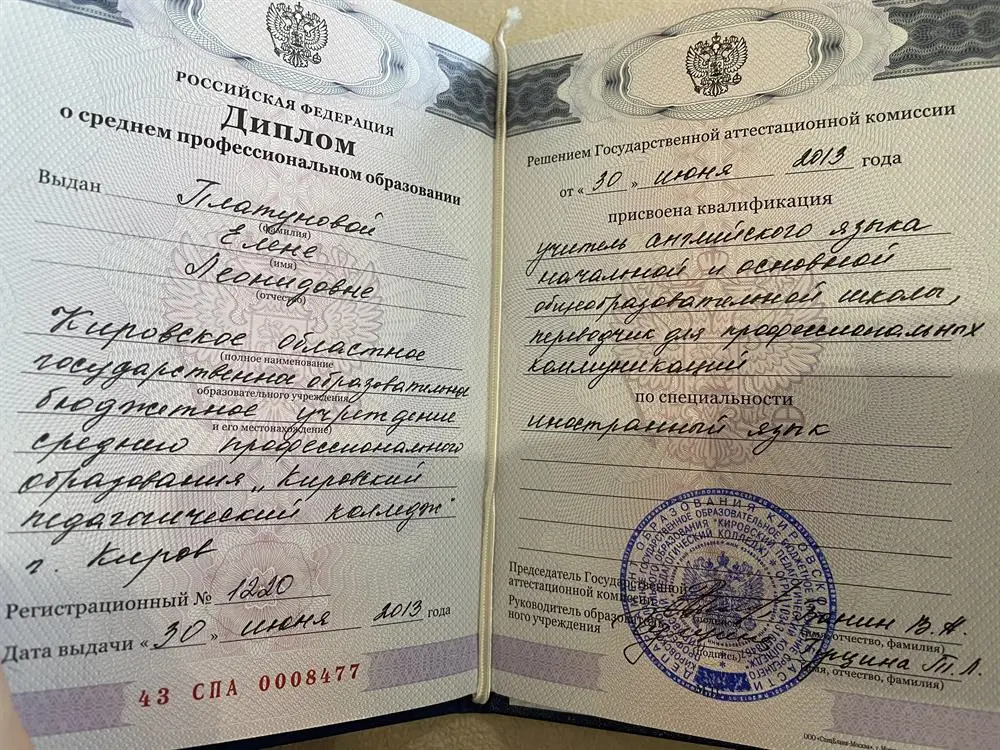 РОССИЙСКАЯ ФЕДЕРАЦИЯ
Диплом
о среднем профессиональном образовании
Выдан Платуновой
(фамилия)
Елене
(имя)
Леонидовне
(отчество)
Кировское областное
(полное наименование
государственное образовательное
образовательного учреждения
бюджетное учреждение
и его местонахождение)
среднего профессионального
образования „Кировский
педагогический колледж"
г. Киров
Регистрационный № 1220
Дата выдачи « 30 » июня 2013 года
43 СПА 0008477
Решением Государственной аттестационной комиссии
от « 30 » июня 2013 года
присвоена квалификация
учитель английского языка
начальной и основной
общеобразовательной школы,
переводчик для профессиональных
коммуникаций
по специальности
иностранный язык
Председатель Государственной
аттестационной комиссии
В. А.
(подпись) отчество, фамилия)
Руководитель образователь-
ного учреждения
Т. Л.
отчество, фамилия)